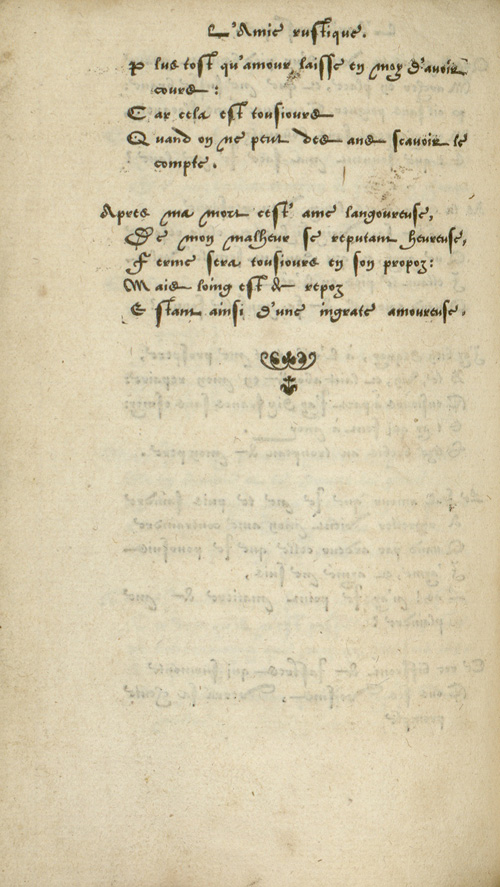 L'Amie rustique.
Plus tost qu'amour laisse en moy d'avoir
cours :
Car cela est tousiours
Quand on ne peut des ans scavoir le
compte.
Apres ma mort cest' ame langoureuse,
De mon malheur se reputant heureuse,
Ferme sera tousiours en son propoz :
Mais loing est de repoz
Estant ainsi d'une ingrate amoureuse.